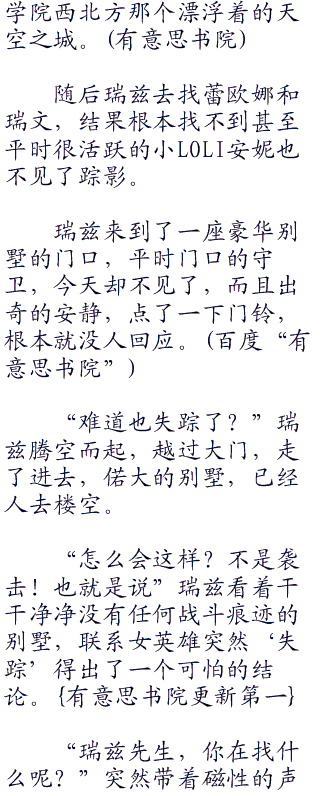 学院西北方那个漂浮着的天
空之城。(有意思书院)
随后瑞兹去找蕾欧娜和
瑞文，结果根本找不到甚至
平时很活跃的小LOLI安妮也
不见了踪影。
瑞兹来到了一座豪华别
墅的门口，平时门口的守
卫，今天却不见了，而且出
奇的安静，点了一下门铃，
根本就没人回应。(百度“有
意思书院”)
“难道也失踪了？”瑞
兹腾空而起，越过大门，走
了进去，偌大的别墅，已经
人去楼空。
“怎么会这样？不是袭
击！也就是说”瑞兹看着干
干净净没有任何战斗痕迹的
别墅，联系女英雄突然‘失
踪’得出了一个可怕的结
论。{有意思书院更新第一}
“瑞兹先生，你在找什
么呢？”突然带着磁性的声